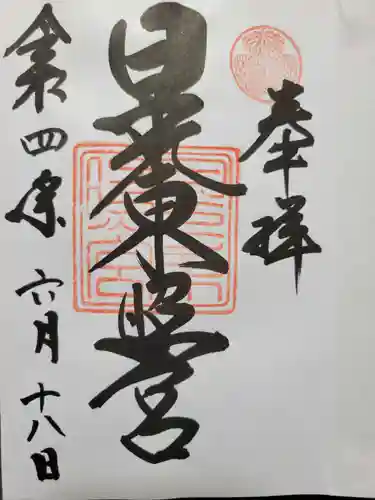 奉拝
日光東照宮
令和四年六月十八日